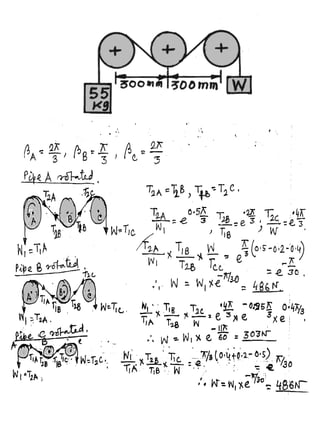 55 kg 300mm 300mm W
βA = 2π/3 , βB = π/3 , βC = 2π/3
Pipe A rotated.
T2A = T2B , T1B = T2C.
A B C
T2A T2B T2C
W1 = T1A W = T1C
T2A/W1 = e^0.5π/3 , T2B/T1B = e^.2π/3 ; T2C/W = e^.4π/3
T2A/W1 × T1B/T2B × W/TCC = e^π/3(0.5-0.2-0.4)
= e^-π/30
∴ W = W1 × e^-π/30 = 486N.
Pipe B rotated
A B C
T1A T1B T2B T2C
W1 = T2A. W = T1C.
W1/T1A × T1B/T2B × T2C/W = e^.4π/3 × e × e^0.4π/3
∴ W = W1 × e^-11π/60 = 303N
Pipe C rotated.
T1A T2B T1B T1C W = T2C.
W1 = T2A.
W1/T1A × T2B/T1B × T1C/W = e^π/3(0.4+0.2-0.5) = e^π/30
∴ W = W1 × e^-π/30 = 486N